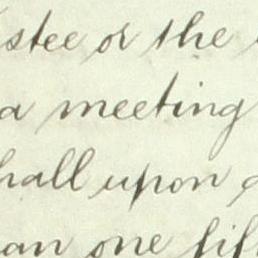 stee or the
a meeting
hall upon
an one fif